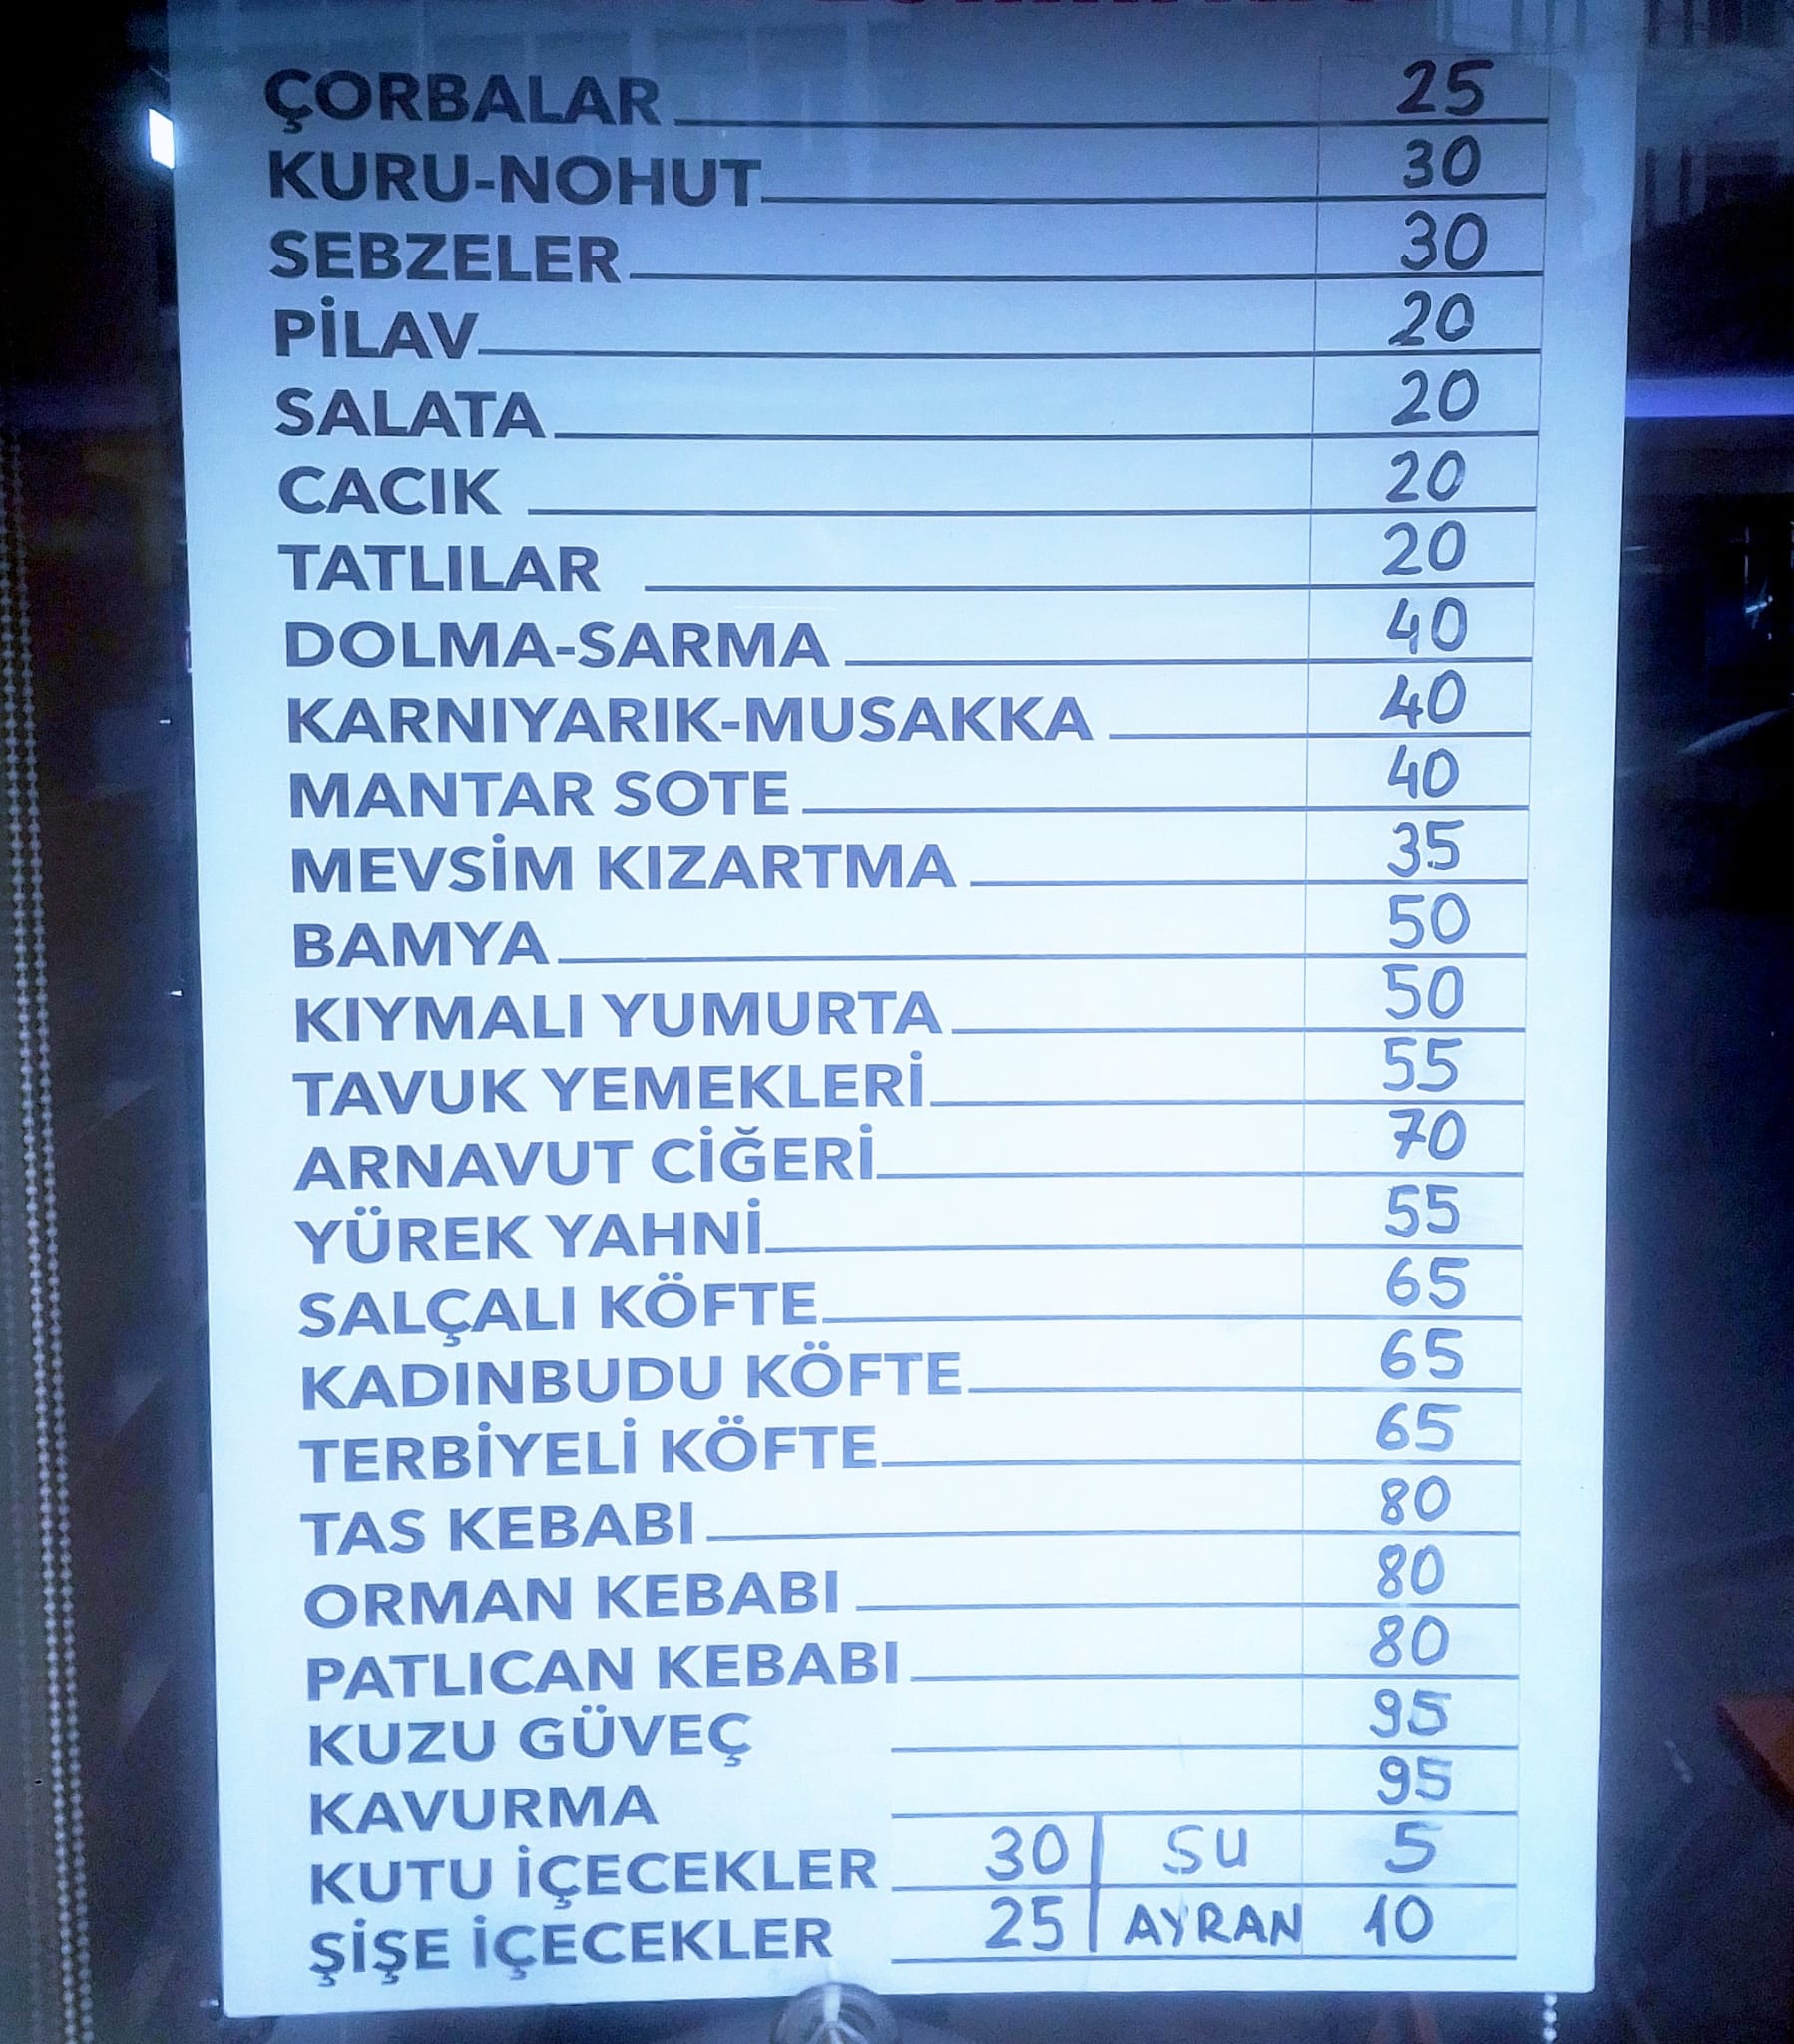 ÇORBALAR 25
KURU-NOHUT 30
SEBZELER 30
PİLAV 20
SALATA 20
CACIK 20
TATLILAR 20
DOLMA-SARMA 40
KARNIYARIK-MUSAKKA 40
MANTAR SOTE 40
MEVSİM KIZARTMA 35
BAMYA 50
KIYMALI YUMURTA 50
TAVUK YEMEKLERİ 55
ARNAVUT CİĞERİ 70
YÜREK YAHNİ 55
SALÇALI KÖFTE 65
KADINBUDU KÖFTE 65
TERBİYELİ KÖFTE 65
TAS KEBABI 80
ORMAN KEBABI 80
PATLICAN KEBABI 80
KUZU GÜVEÇ 95
KAVURMA 95
KUTU İÇECEKLER 30 SU 5
ŞİŞE İÇECEKLER 25 AYRAN 10